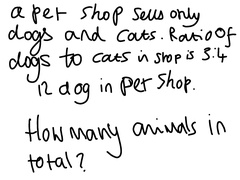 a pet shop sells only
dogs and cats. Ratio of
dogs to cats in shop is 3:4
12 dog in pet shop.
How many animals in
total?